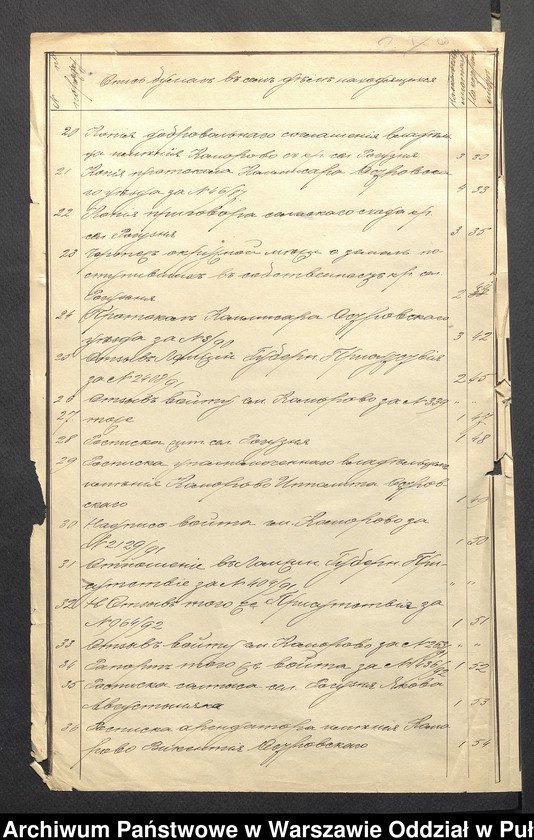 Опись бумагъ въ семъ дѣлѣ находящихся
20 Копія добровольнаго соглашенія владѣль
ца имѣнія Коморово съ кр. сел. Рогузня 3 30
21 Копія протокола Коммисара Островска
го уѣзда за № 16/ 4 33
22 Копія приговора сельскаго схода кр.
сел. Рогузня 3 35
23 о земляхъ по
ступившихъ въ собственность кр. сел.
Рогузня 2
24 Протоколъ Коммисара Островскаго
уѣзда за № 8/90 3 42
25 Отзывъ Губерн. Присутствія
за № 2408/91 2 45
26 Отзывъ войту гм. Коморово за № 339 " "
27 тоже 1 47
28 Росписка сел. Рогузня 1 48
29 Росписка уполномоченнаго владѣльцемъ
имѣнія Коморово Ипполита Остров
скаго 1 49
30 Надпись войта гм. Коморово за
№ 2129/91 1 50
31 Отношеніе въ Ломжин. Губерн. При
сутствіе за № 404/91 " "
32 Отзывъ того же Присутствія за
№ 964/92 1 51
33 Отзывъ войту гм. Коморово за № " "
34 Рапортъ того же войта за № 1 52
35 Росписка солтыса сел. Рогузня Якова
Августыняка 1 53
36 Росписка арендатора имѣнія Комо
рово Викентія Островскаго 1 54
Archiwum Państwowe w Warszawie Oddział w Puł